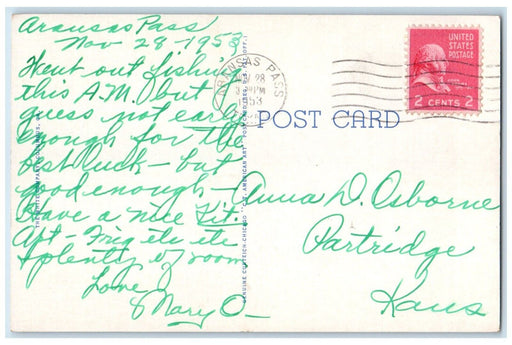 Aransas Pass
Nov 28 - 1953
Went out fishing
this A.M. but
guess not early
enough for the
best luck - but
good enough -
Have a nice Kit.
Apt - Frig etc etc
+ plenty of room
Love
Mary O -
ARANSAS PASS
28
PM
53
UNITED
STATES
POSTAGE
2 CENTS 2
POST CARD
GENUINE CURTEICH-CHICAGO "C.T. AMERICAN ART" POST CARD (REG. U.S. PAT. OFF.)
Anna D. Osborne
Partridge
Kans